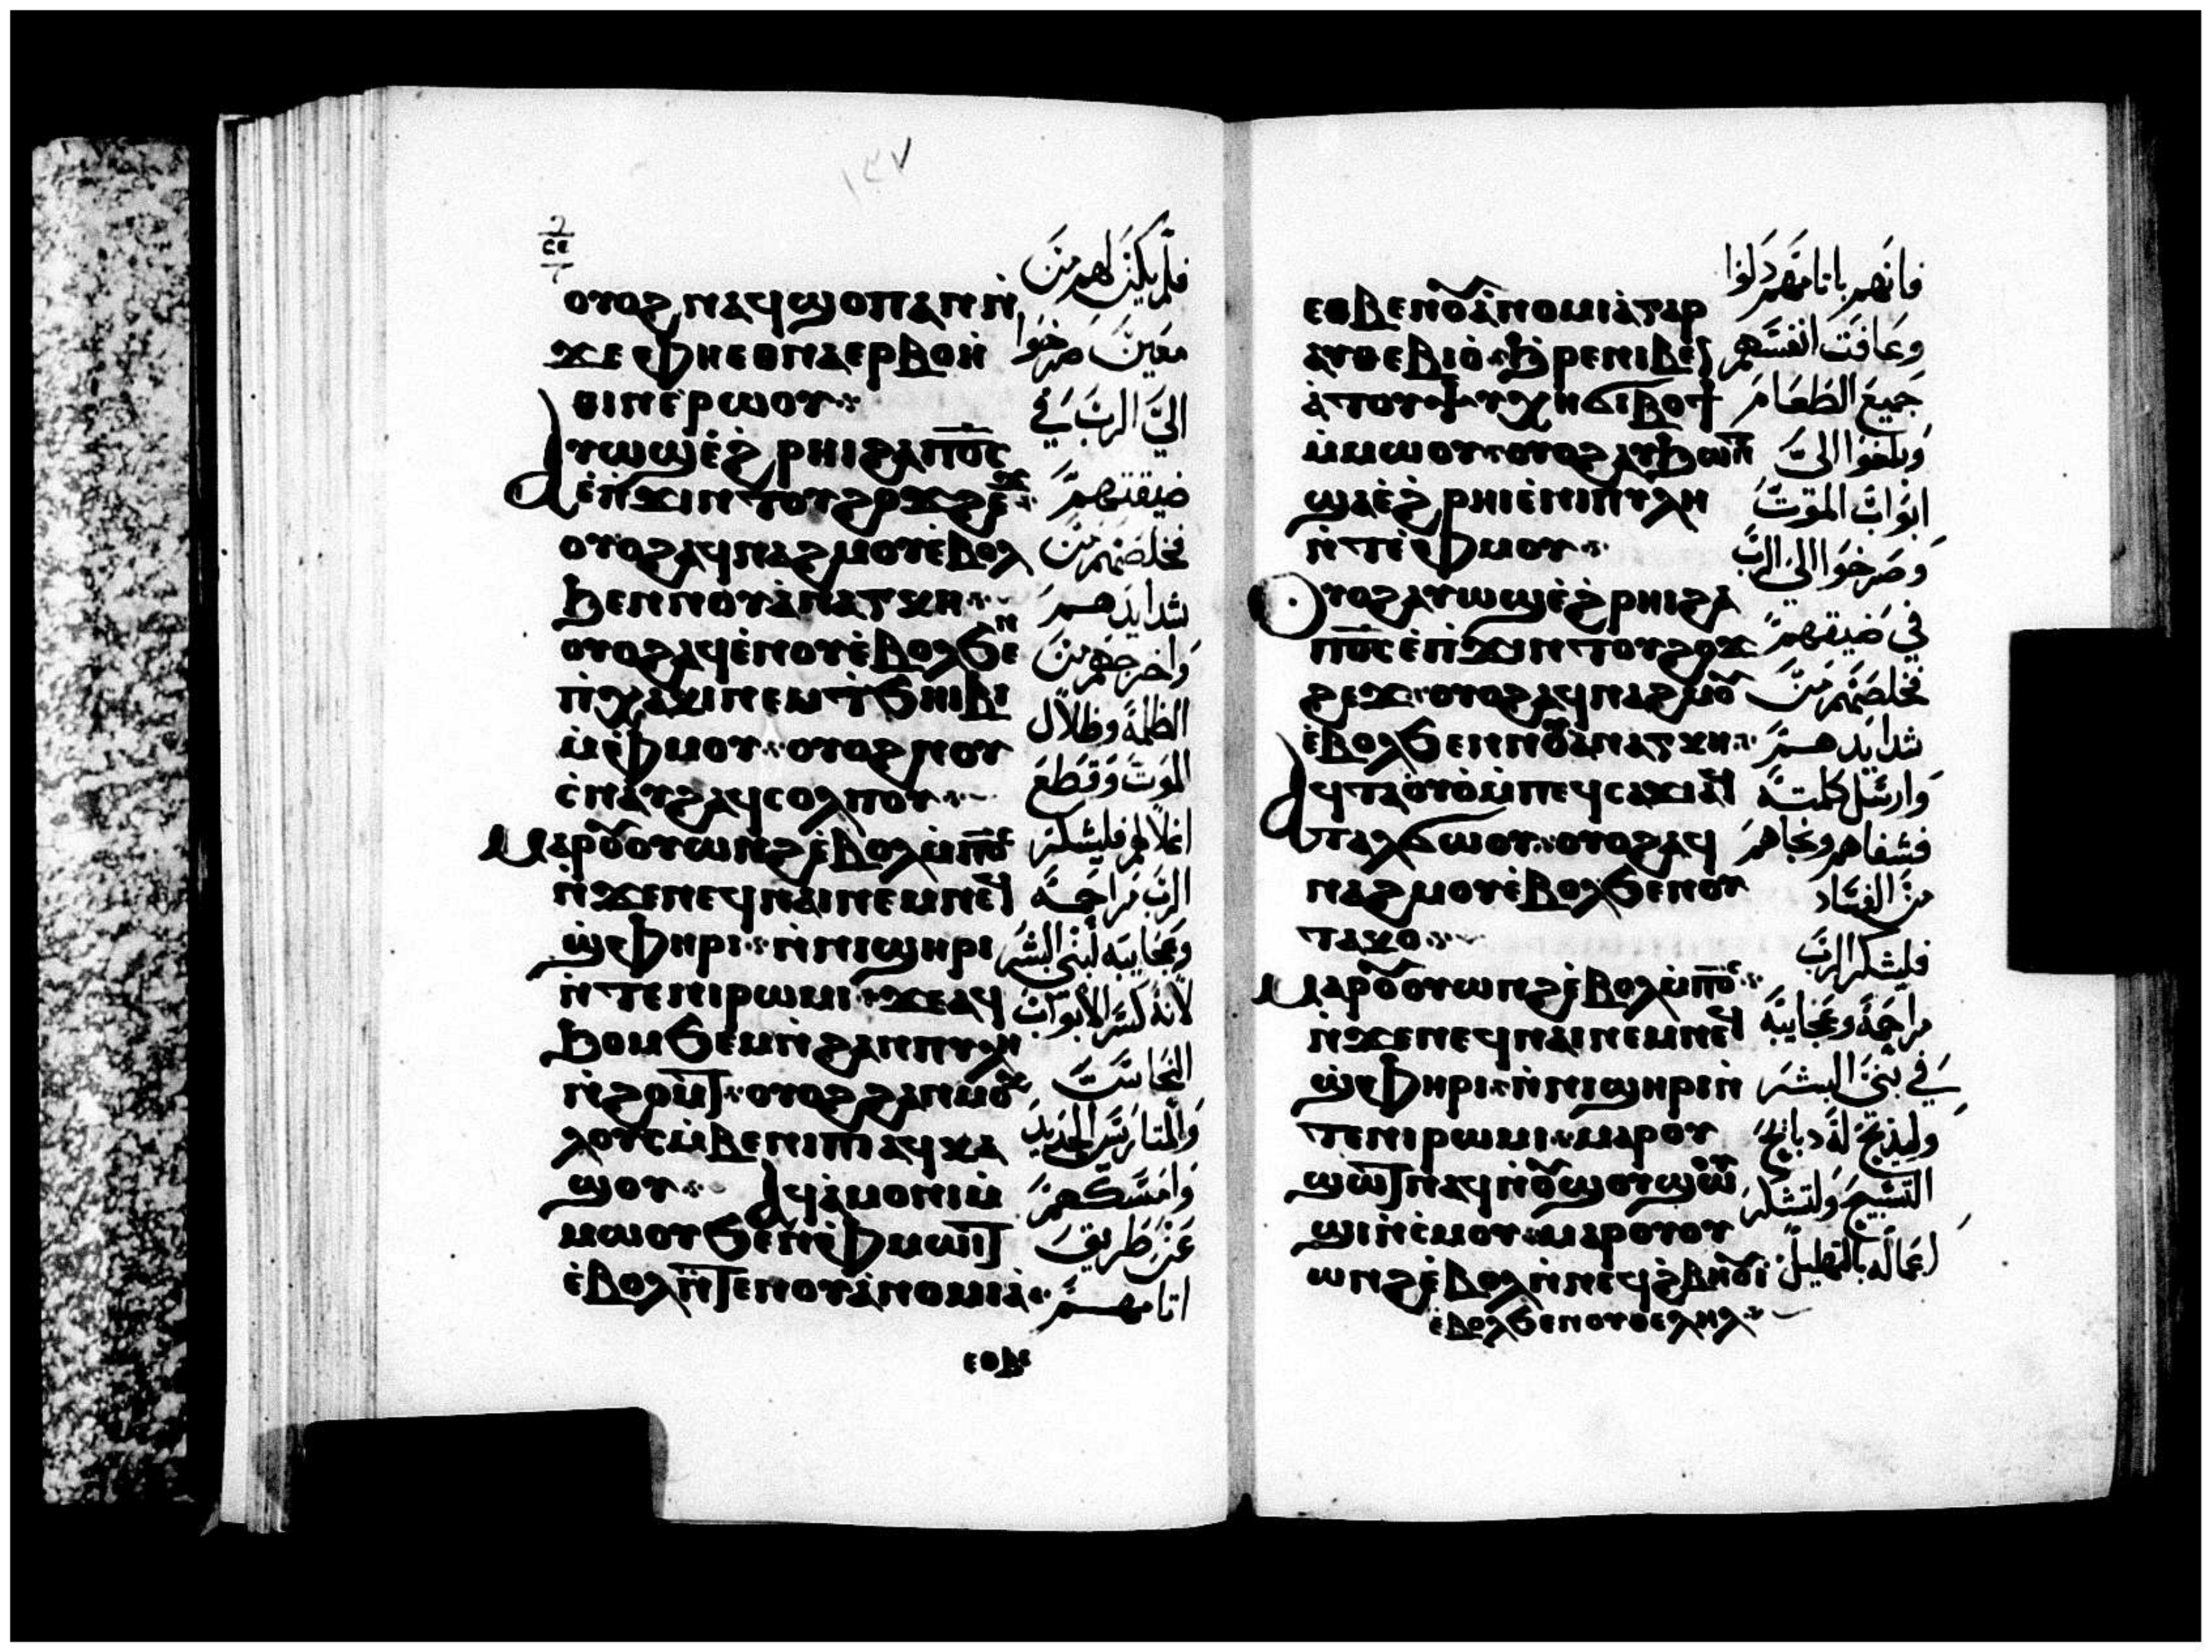 ١٣٧
ⲥⲉ
ⲟⲩⲟϩ ⲛⲁϥϣⲟⲡ ⲁⲛ ⲛ̀
ϫⲉ ⲫⲏⲉⲑⲛⲁⲉⲣⲃⲟⲏ̀
ⲑⲓⲛ ⲉ̀ⲣⲱⲟⲩ
ⲁⲩⲱϣ ⲉ̀ϩⲣⲏⲓ ϩⲁ ⲡ̅ⲟ̅ⲥ̅
ϧⲉⲛ ⲡ̀ϫⲓⲛⲧⲟⲩϩⲟϫϩⲉϫ
ⲟⲩⲟϩ ⲁϥⲛⲁϩⲙⲟⲩ ⲉ̀ⲃⲟⲗ
ϧⲉⲛ ⲛⲟⲩⲁ̀ⲛⲁⲅⲕⲏ
ⲟⲩⲟϩ ⲁϥⲉ̀ⲛⲟⲩ ⲉ̀ⲃⲟⲗ ϧⲉⲛ
ⲡ̀ⲭⲁⲕⲓ ⲛⲉⲙ ⲧ̀ϧⲏⲓⲃⲓ
ⲙ̀ⲫⲙⲟⲩ ⲟⲩⲟϩ ⲛⲟⲩ
ⲥ̀ⲛⲁⲩϩ ⲁϥⲥⲟⲗⲡⲟⲩ
ⲙⲁⲣⲟⲩⲟⲩⲱⲛϩ ⲉ̀ⲃⲟⲗ ⲙ̀ⲡ̅ⲟ̅ⲥ̅
ⲛ̀ϫⲉ ⲛⲉϥⲛⲁⲓ ⲛⲉⲙ ⲛⲉϥ
ϣ̀ⲫⲏⲣⲓ ⲛ̀ⲛⲓϣⲏⲣⲓ
ⲛ̀ⲧⲉ ⲛⲓⲣⲱⲙⲓ ϫⲉ ⲁϥ
ϧⲟⲙϧⲉⲙ ⲛ̀ϩⲁⲛⲡⲩⲗⲏ
ⲛ̀ϩⲟⲙⲧ ⲟⲩⲟϩ ϩⲁⲛⲙⲟ
ⲭⲗⲟⲩⲥ ⲙ̀ⲃⲉⲛⲓⲡⲓ ⲁϥⲕⲁ
ϣⲟⲩ ⲁϥⲁ̀ⲙⲟⲛⲓ ⲙ̀
ⲙⲱⲟⲩ ϧⲉⲛ ⲫⲙⲱⲓⲧ
ⲉ̀ⲃⲟⲗ ⲛ̀ⲧⲉ ⲛⲟⲩⲁ̀ⲛⲟⲙⲓⲁ̀
ⲉⲑⲃⲉ
فلم يكن لهم من
معين صرخوا
الي الرب في
ضيقتهم
فخلصهم من
شدايدهم
واخرجهم من
الظلمة وظلال
الموت وقطع
اغلالهم فليشكر
الرب مراحمه
وعجايبه لبني البشر
لانه كسر الابواب
النحاس
والمتاريس الحديد
وامسكهم
عن طريق
اثامهم
ⲉⲑⲃⲉ ⲛⲟⲩⲁ̀ⲛⲟⲙⲓⲁ̀ ⲅⲁⲣ
ⲁⲩⲑⲉⲃⲓⲟ̀ ϧⲣⲉ ⲛⲓⲃⲉⲛ
ⲁ̀ ⲧⲟⲩⲯⲩⲭⲏ ϭⲓⲃⲟϯ
ⲙ̀ⲙⲱⲟⲩ ⲟⲩⲟϩ ⲁⲩϧⲱⲛⲧ
ϣⲁ ⲉ̀ϩⲣⲏⲓ ⲉ̀ⲛⲓⲡⲩⲗⲏ
ⲛ̀ⲧⲉ ⲫⲙⲟⲩ
ⲟⲩⲟϩ ⲁⲩⲱϣ ⲉ̀ϩⲣⲏⲓ ϩⲁ
ⲡ̅ⲟ̅ⲥ̅ ⲉ̀ⲡ̀ϫⲓⲛⲧⲟⲩϩⲟϫ
ϩⲉϫ ⲟⲩⲟϩ ⲁϥⲛⲁϩⲙⲟⲩ
ⲉ̀ⲃⲟⲗ ϧⲉⲛ ⲛⲟⲩⲁⲛⲁⲅⲕⲏ
ⲁϥⲧⲁⲟⲩⲟ̀ ⲙ̀ⲡⲉϥⲥⲁϫⲓ ⲁϥ
ⲧⲁⲗϭⲱⲟⲩ ⲟⲩⲟϩ ⲁϥ
ⲛⲁϩⲙⲟⲩ ⲉ̀ⲃⲟⲗ ϧⲉⲛ ⲛⲟⲩ
ⲧⲁⲕⲟ
ⲙⲁⲣⲟⲩⲟⲩⲱⲛϩ ⲉ̀ⲃⲟⲗ ⲙ̀ⲡ̅ⲟ̅ⲥ̅
ⲛ̀ϫⲉ ⲛⲉϥⲛⲁⲓ ⲛⲉⲙ ⲛⲉϥ
ϣ̀ⲫⲏⲣⲓ ⲛ̀ⲛⲓϣⲏⲣⲓ ⲛ̀
ⲧⲉ ⲛⲓⲣⲱⲙⲓ ⲙⲁⲣⲟⲩ
ϣⲱⲧ ⲛⲁϥ ⲛ̀ⲟⲩϣⲟⲩϣⲱⲟⲩ
ϣⲓ ⲛ̀ⲥ̀ⲙⲟⲩ ⲙⲁⲣⲟⲩⲟⲩ
ⲱⲛϩ ⲉ̀ⲃⲟⲗ ⲛ̀ⲛⲉϥϩ̀ⲃⲏⲟⲩⲓ
ⲉ̀ⲃⲟⲗ ϧⲉⲛ ⲟⲩⲑⲉⲗⲏⲗ
فانهم باثامهم ذلوا
وعافت انفسهم
جميع الطعام
وبلغوا الي
ابواب الموت
وصرخوا الي الرب
في ضيقهم
فخلصهم من
شدايدهم
وارسل كلمته
فشفاهم ونجاهم
من الفساد
فليشكر الرب
مراحمه وعجايبه
في بني البشر
وليذبح له دبايح
التسبيح ولتشكر
اعماله بالتهليل